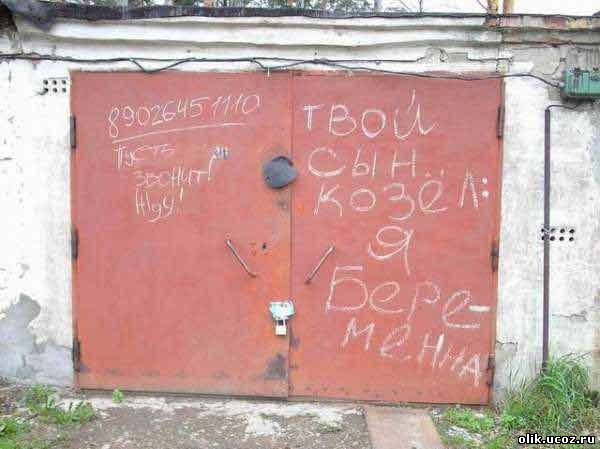 89026451110
пусть
звонит!
Жду!
твой
сын..
козёл:
я
Бере-
менна
olik.ucoz.ru